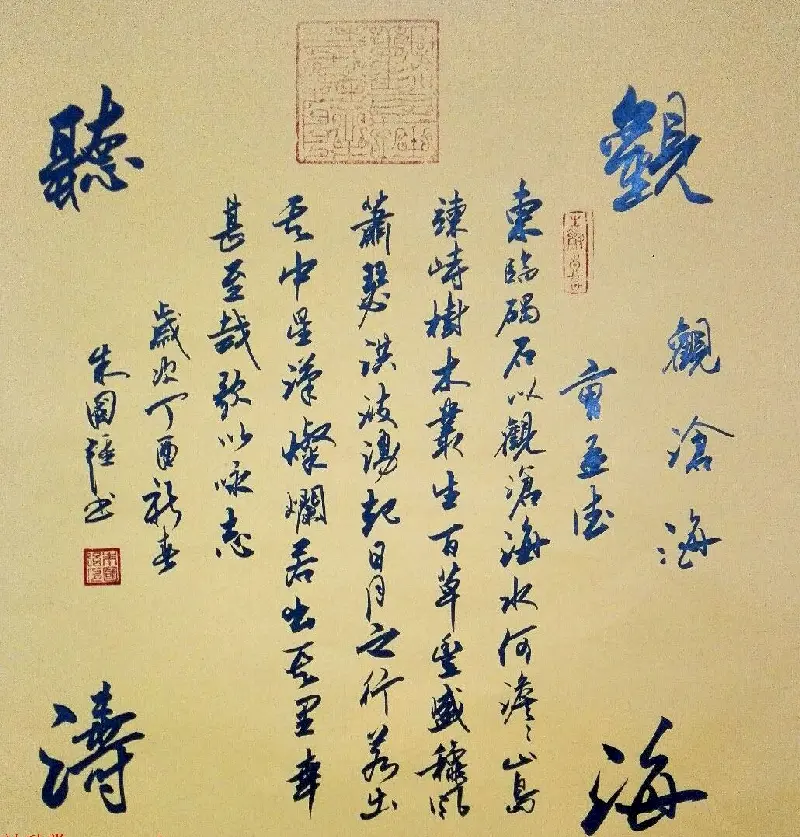 觀
海
聽
濤
觀滄海
曹孟德
東臨碣石以觀滄海水何澹〻山島
竦峙樹木叢生百草豐盛穐風
蕭瑟洪波湧起日月之行若出
其中星漢燦爛若出其里幸
甚至哉歌以咏志
歲次丁酉新春
朱國強书